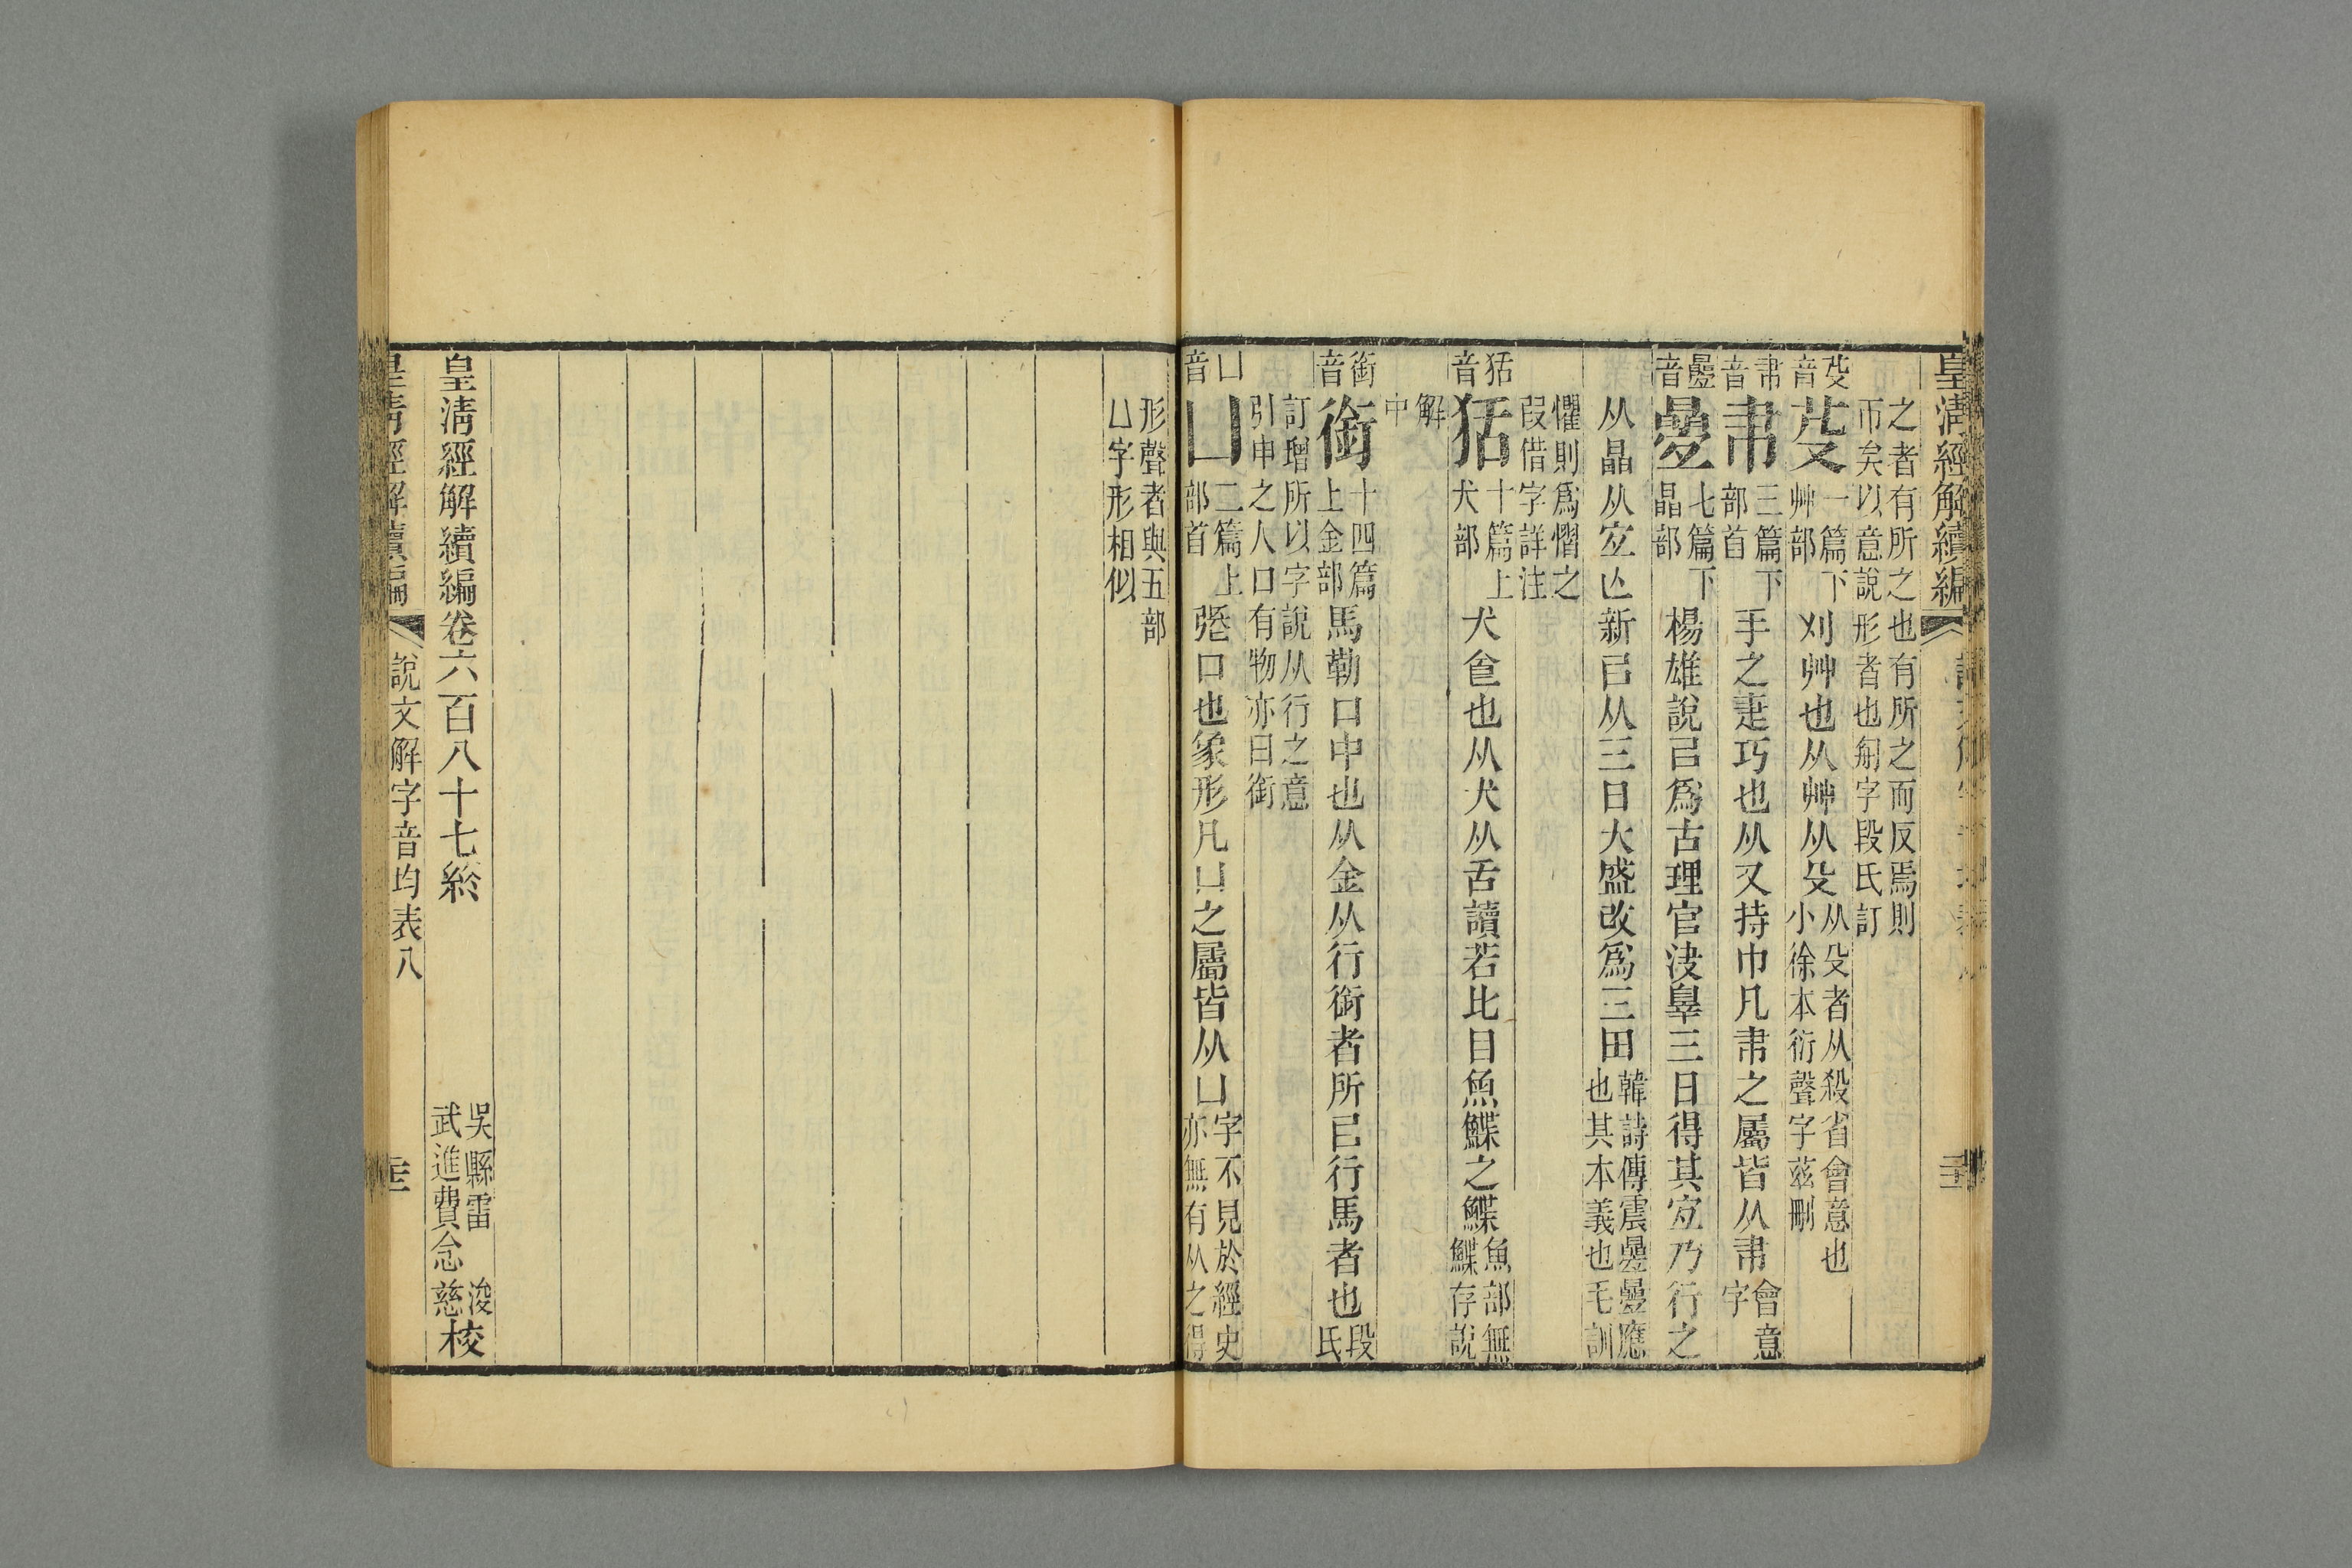 皇淸經解續編
之者有所之也有所之而反焉則
帀矣以意說形者也𦨕字段氏訂
芟音 芟 一篇下艸部 刈艸也从艸从殳 从殳者从殺省會意也小徐本衍聲字茲刪
𦘒音 𦘒 三篇下部首 手之疌巧也从又持巾凡𦘒之屬皆从𦘒 會意字
疊音 曡 七篇下晶部 楊雄說㠯爲古理官決辠三日得其宐乃行之
从晶从宐亾新㠯从三日大盛改爲三田 韓詩傳震疊曡應也其本義也毛訓
懼則爲慴之
叚借字詳注
狧音 狧 十篇上犬部 犬食也从犬从舌讀若比目魚鰈之鰈 魚部無鰈存說
解
中
銜音 銜 十四篇上金部 馬勒口中也从金从行銜者所㠯行馬者也 段氏
訂增所以字說从行之意
引申之人口有物亦曰銜
凵音 凵 二篇上部首 張口也象形凡凵之屬皆从凵 字不見於經史亦無有从之得
形聲者與五部
凵字形相似
皇淸經解續編卷六百八十七終
吳縣雷浚
武進費念慈
校
皇淸經解續編
說文解字音均表八